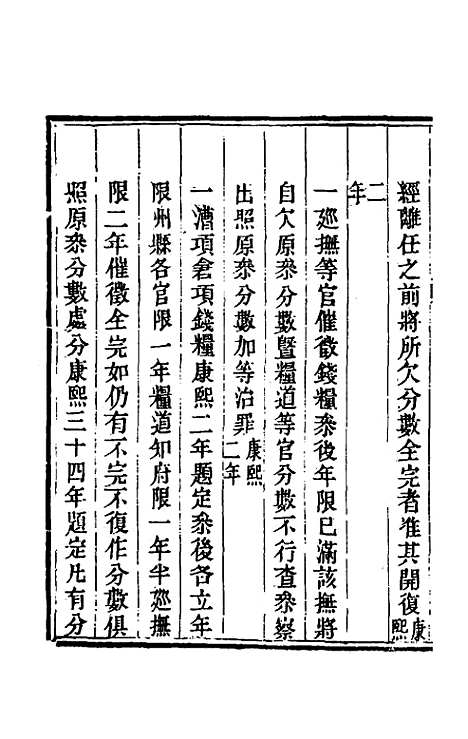 經離任之前將所欠分數全完者准其開復康熙
二年
一廵撫等官催徵錢糧叅後年限已滿該撫將
自欠原叅分數暨糧道等官分數不行查叅察
出照原叅分數加等治罪康熙二年
一漕項倉項錢糧康熙二年題定叅後各立年
限州縣各官限一年糧道知府限一年半廵撫
限二年催徵全完如仍有不完不復作分數俱
照原叅分數處分康熙三十四年題定凡有分